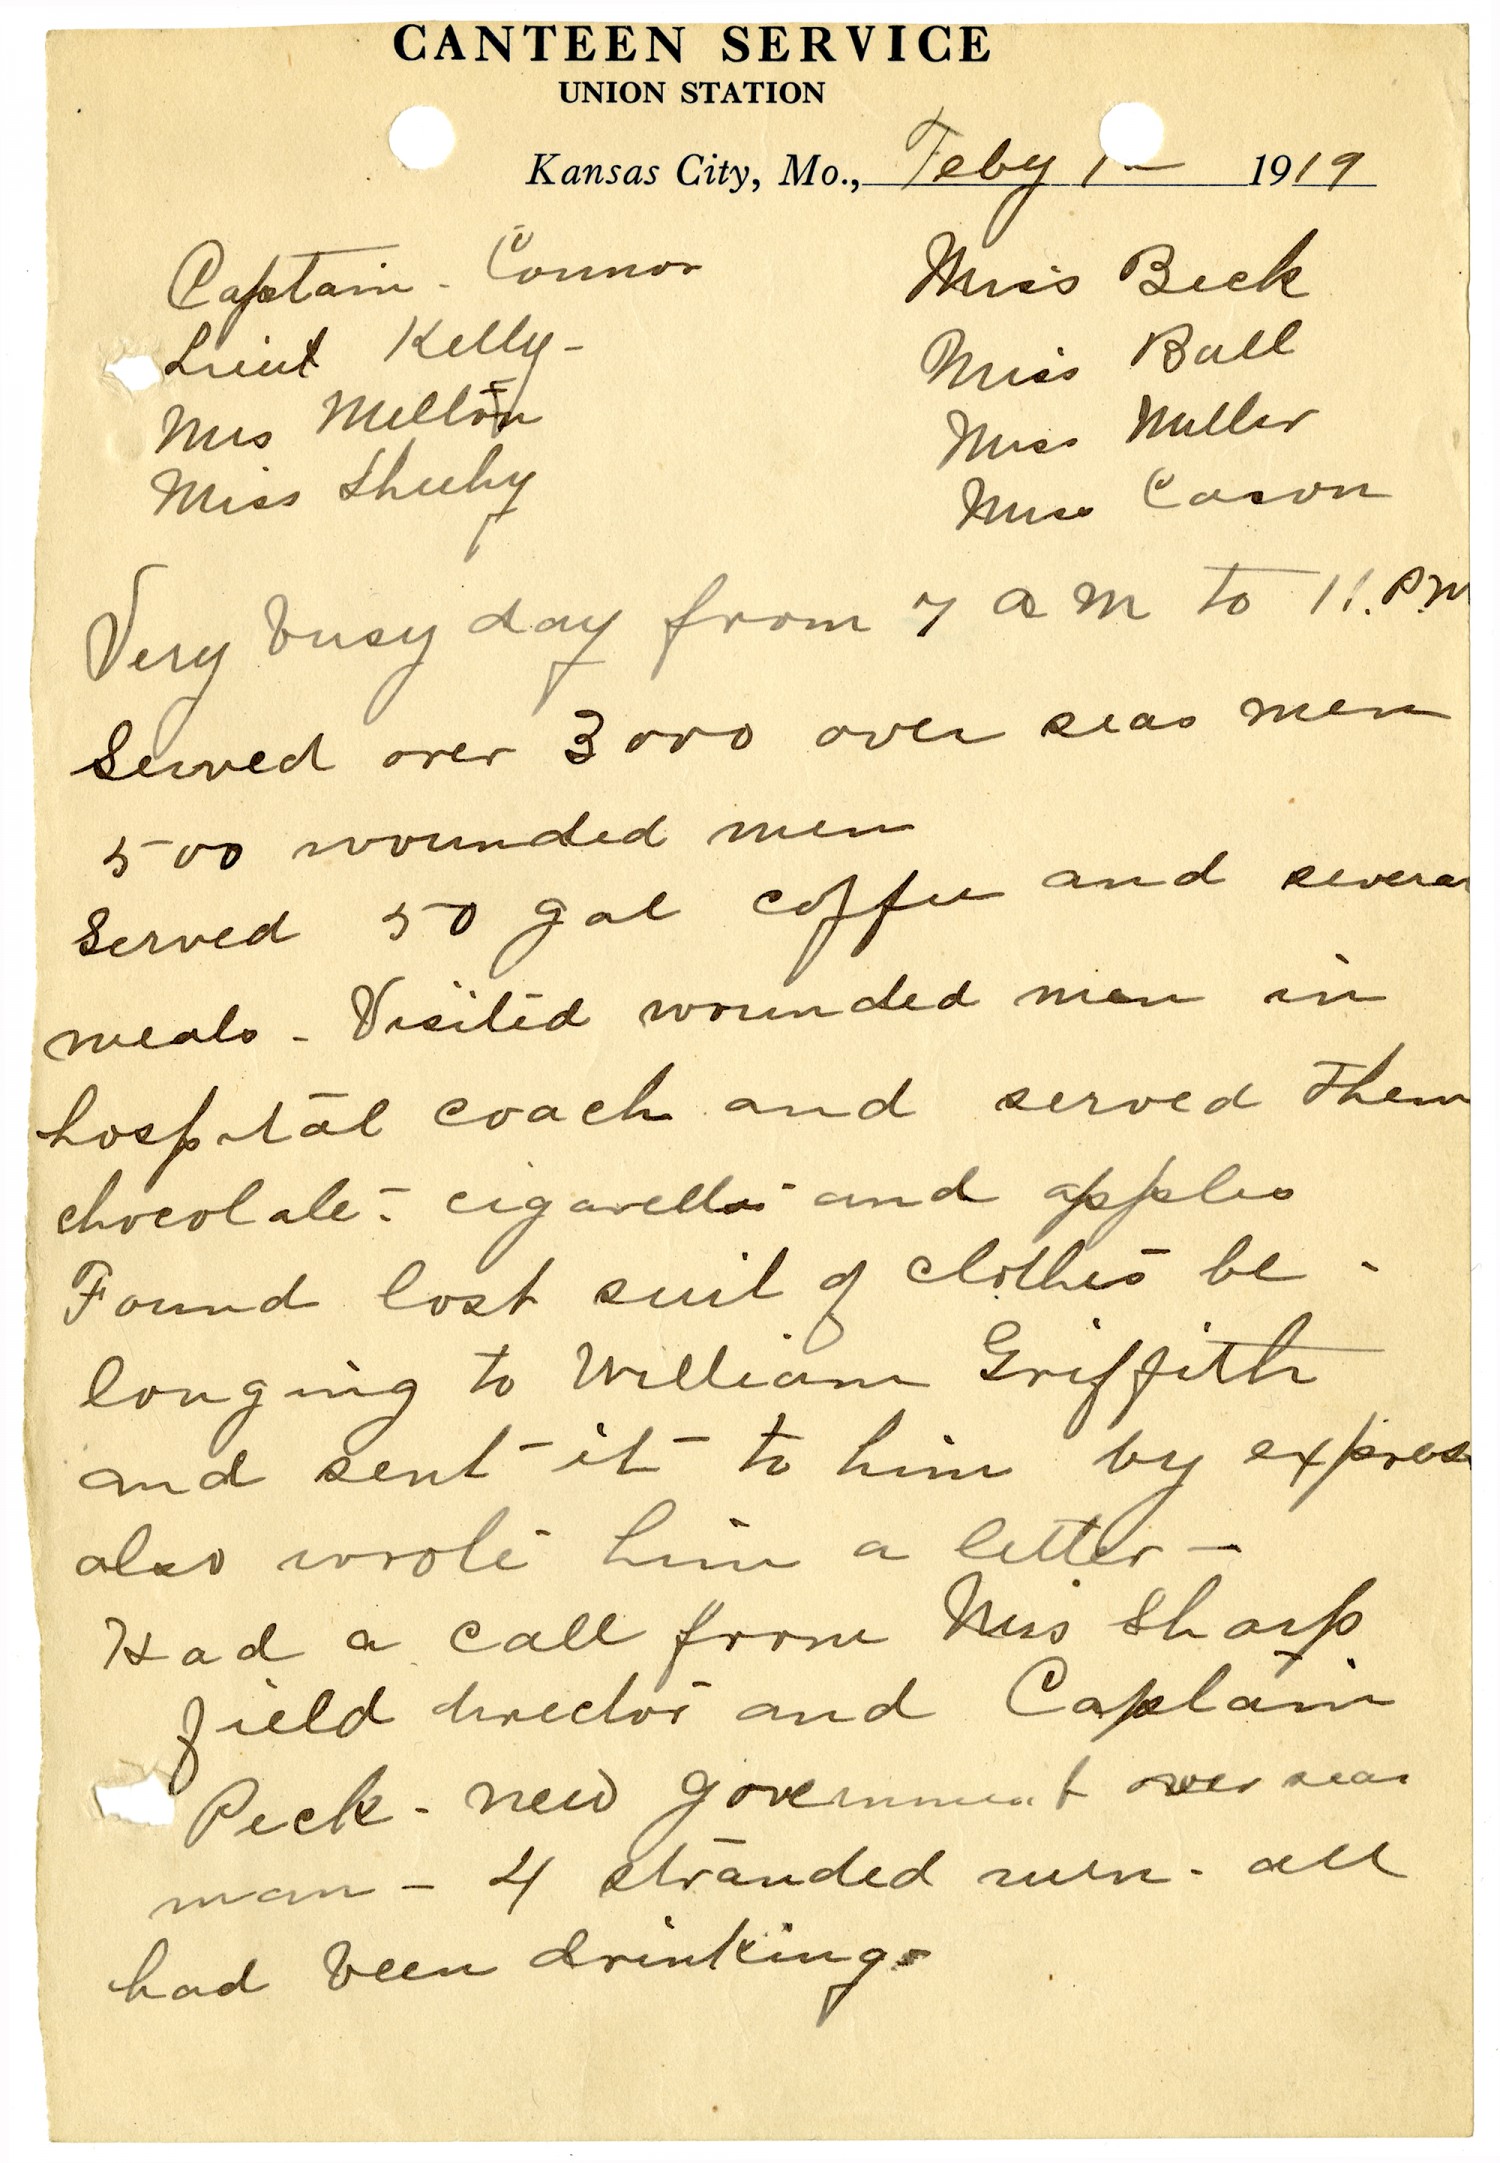 CANTEEN SERVICE
UNION STATION
Kansas City, Mo., Feby 1 - 1919
Captain - Connor
Miss Beck
Lieut Kelly -
Miss Ball
Mrs Melton
Miss Miller
Miss Sheehy
Miss Cason
Very busy day from 7 a m to 11. P.M
Served over 3000 over seas men
500 wounded men
Served 50 gal coffee and several
meals - Visited wounded men in
hospital coach and served them
chocolate - cigarettes and apples
Found lost suit of clothes be -
longing to William Griffith
and sent it to him by express
also wrote him a letter -
Had a call from Miss Sharp
field director and Captain
Peck - new government over seas
man - 4 stranded men - all
had been drinking.